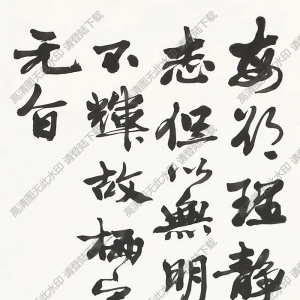 每欲理静
志但以無明
不輝故栖
无自
高清图无此水印 请登陆下载